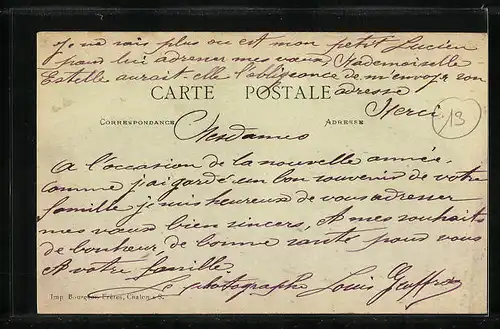 Je ne sais plus ou est mon petit Lucien
pour lui adresser mes vœux Mademoiselle
Estelle aurait-elle l'obligeance de m'envoyer son
adresse
CARTE POSTALE
Merci
13
CORRESPONDANCE
ADRESSE
Mesdames
A l'occasion de la nouvelle année,
comme j'ai gardé un bon souvenir de votre
famille je suis heureux de vous adresser
mes vœux bien sincers, & mes souhaits
de bonheur, de bonne santé pour vous
& votre famille.
Le photographe Louis
Imp. Bourgeon Frères, Chalon s S.